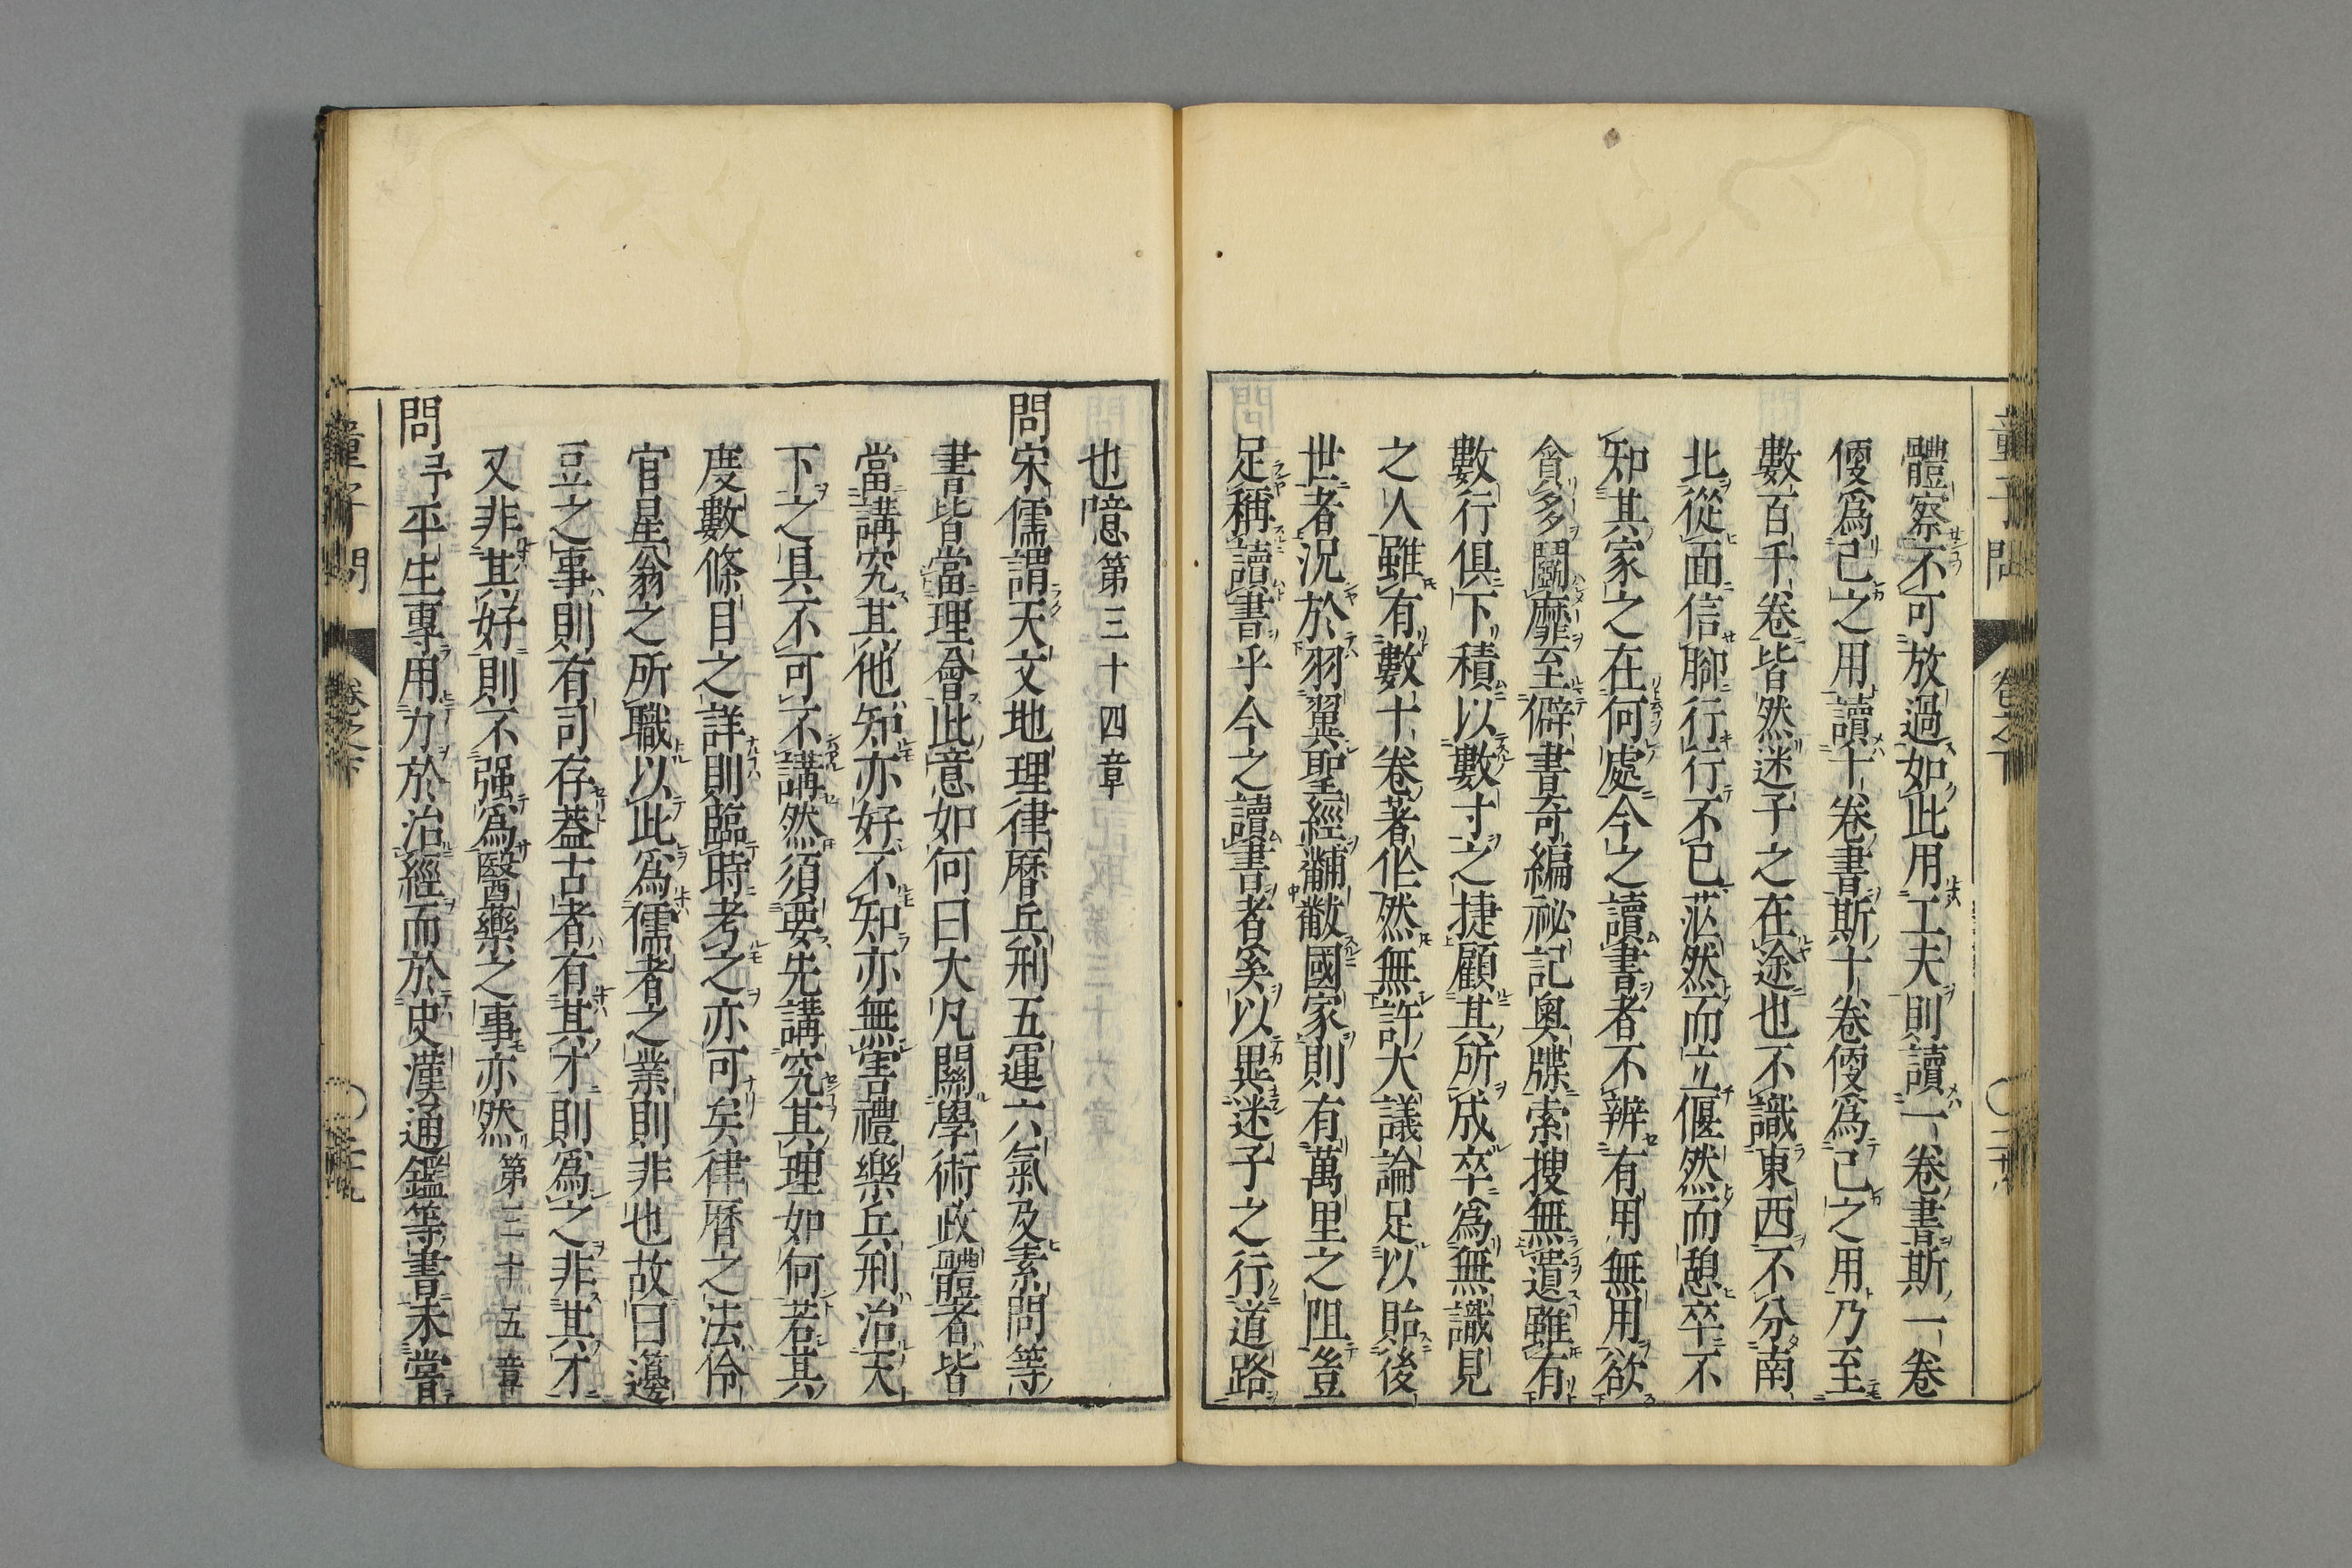 體察不可放過如此用工夫則讀一卷書斯一卷
便爲己之用讀十卷書斯十卷便爲己之用乃至
數百千卷皆然迷子之在途也不識東西不分南
北從面信腳行行不已茫然而立偃然而憩卒不
知其家之在何處今之讀書者不辨有用無用欲
貪多鬭靡至僻書奇編祕記奧牒索搜無遺雖有
數行俱下積以數寸之捷顧其所成卒爲無識見
之人雖有數十卷著作然無許大議論足以貽後
世者況於羽翼聖經黼黻國家則有萬里之阻豈
足稱讀書乎今之讀書者奚以異迷子之行道路
也噫第三十四章
問宋儒謂天文地理律曆兵刑五運六氣及素問等
書皆當理會此意如何曰大凡關學術政體者皆
當講究其他知亦好不知亦無害禮樂兵刑治天
下之具不可不講然須要先講究其理如何若其
度數條目之詳則臨時考之亦可矣律曆之法伶
官星翁之所職以此爲儒者之業則非也故曰籩
豆之事則有司存蓋古者有其才則爲之非其才
又非其好則不强爲醫藥之事亦然第三十五章
問予平生專用力於治經而於史漢通鑑等書未嘗
童子問 卷之下